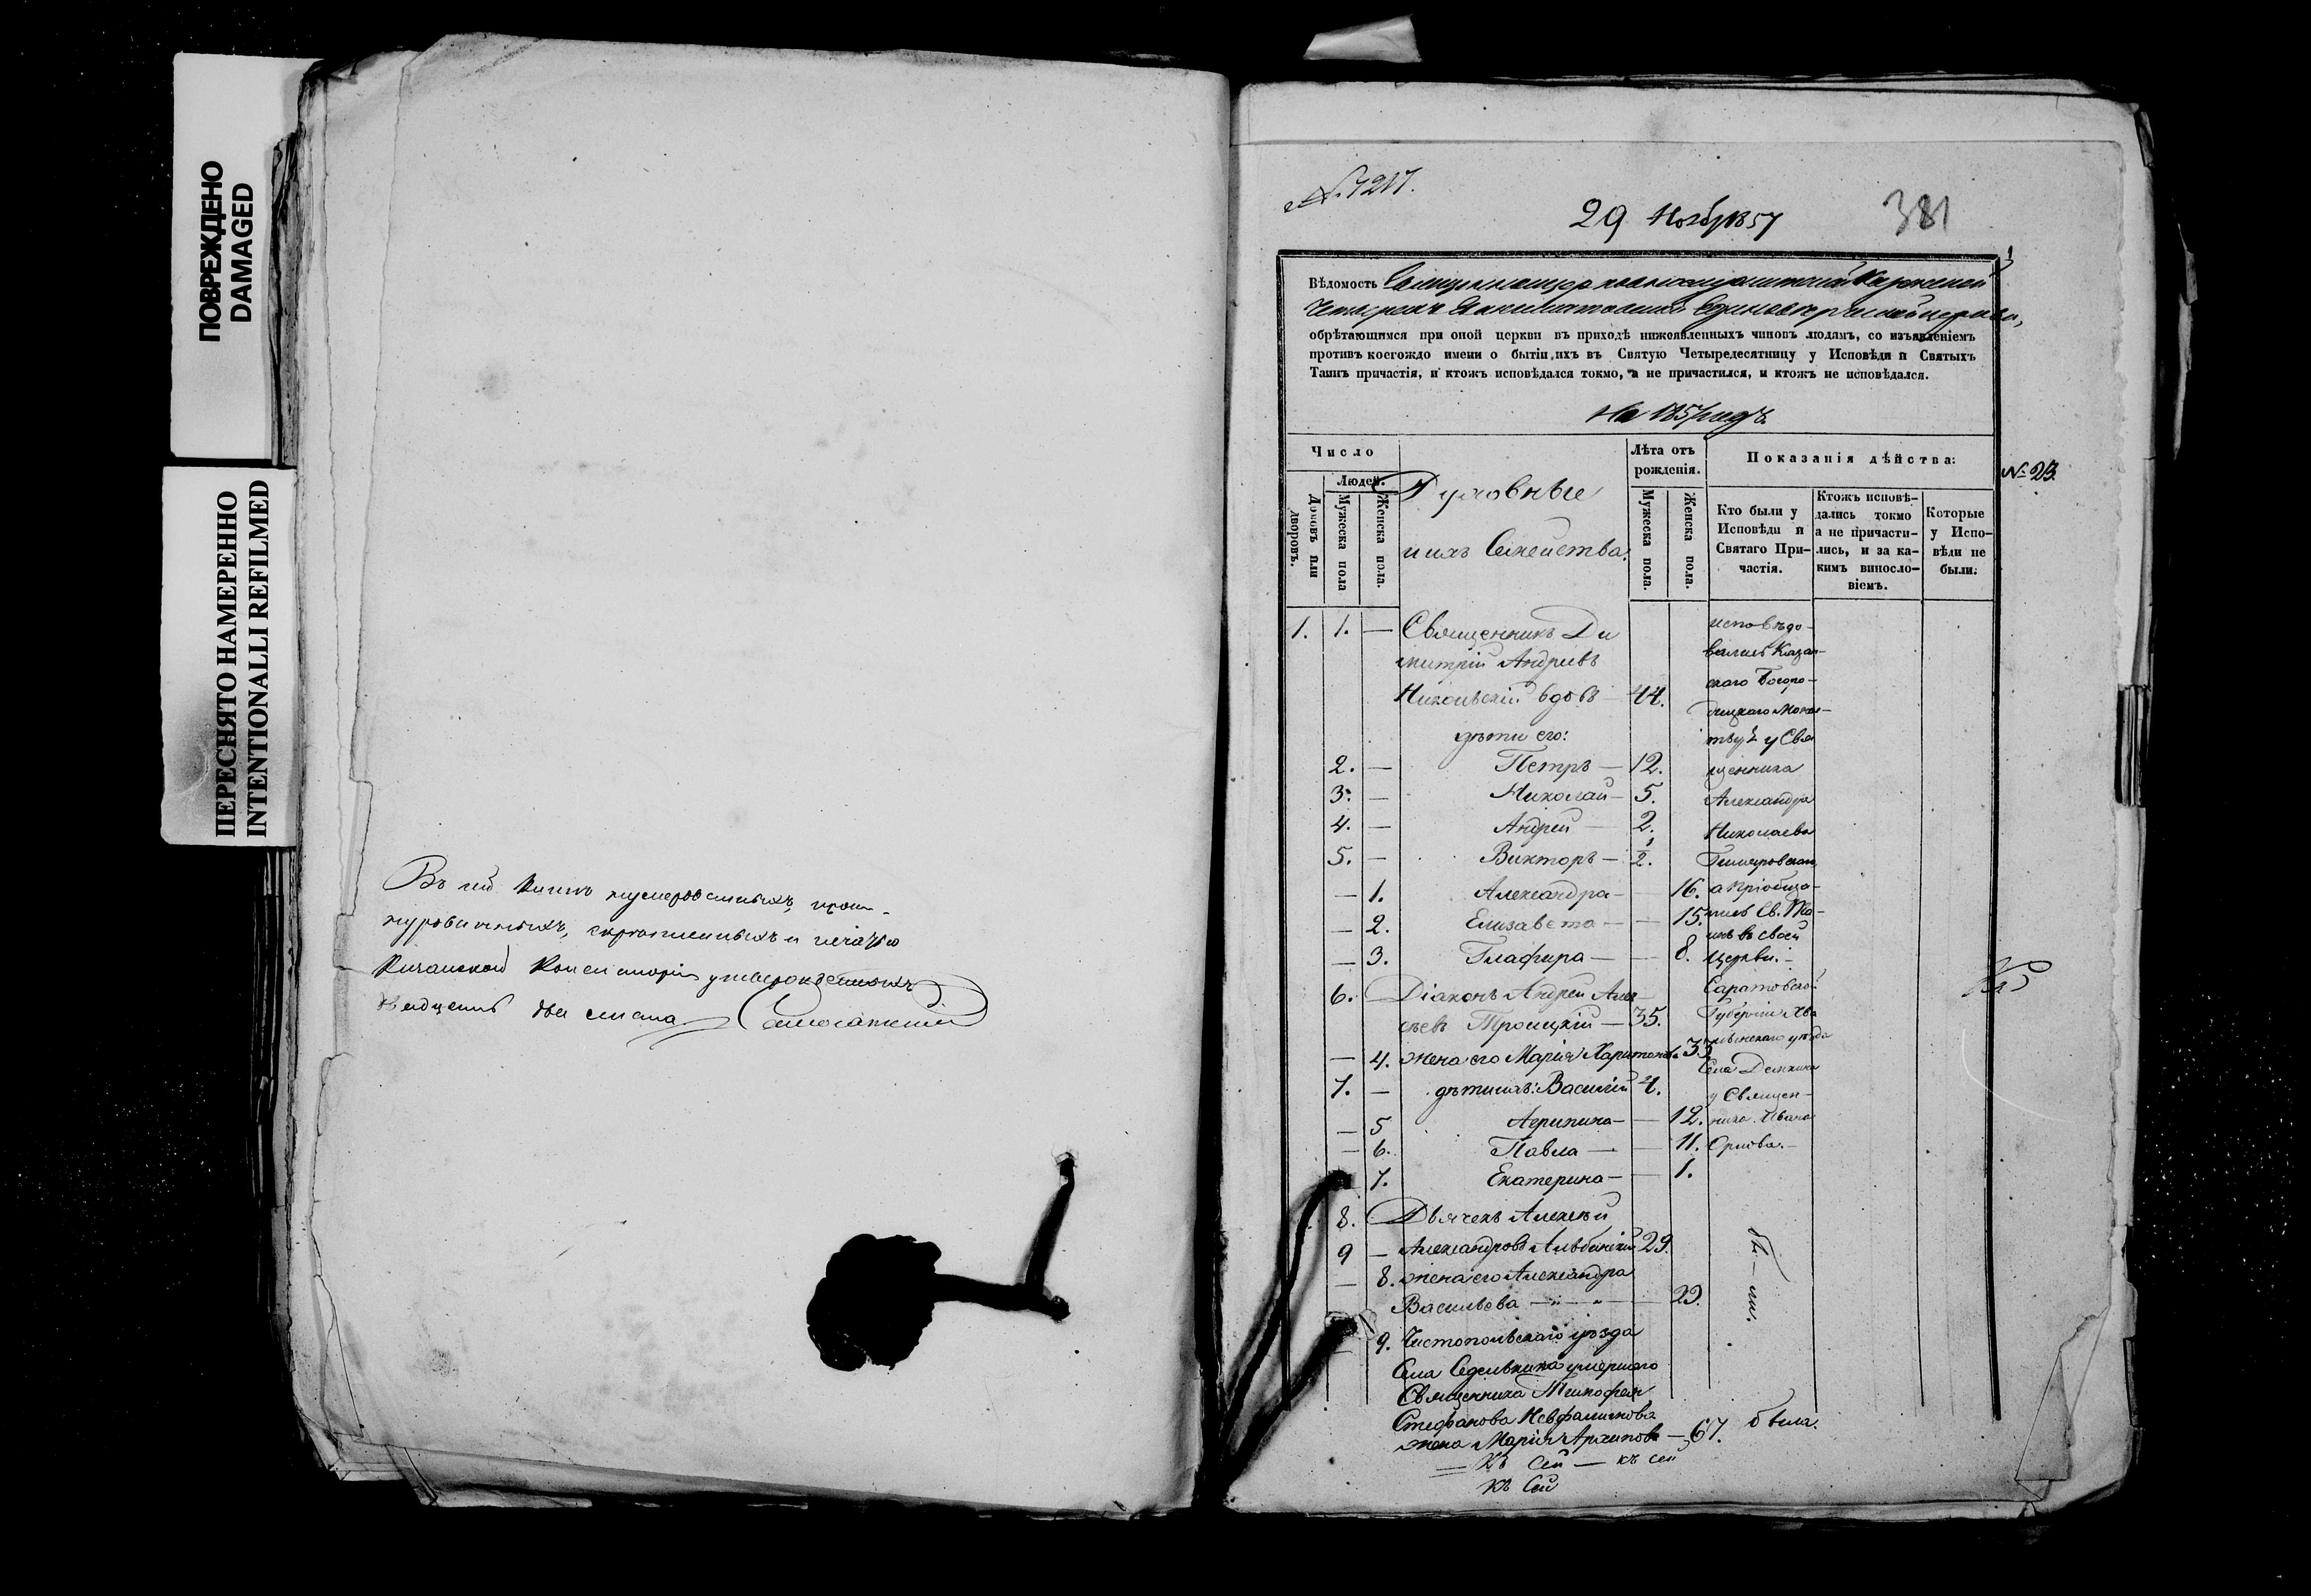 ПОВРЕЖДЕНО
DAMAGED
ПЕРЕСНЯТО НАМЕРЕННО
INTENTIONALLI REFILMED
Въ сей книгѣ нумерованныхъ, прош-
нурованныхъ, скрѣпленныхъ и печатью
Казанской Консисторіи утвержденныхъ
два листа
№ 7217.
29 Ноябр 1857
381
Вѣдомость
Единовѣрческой церкви,
обрѣтающимся при оной церкви въ приходѣ нижеявленныхъ чиновъ людямъ, со изъявленіемъ
противъ коегождо имени о бытіи ихъ въ Святую Четыредесятницу у Исповѣди и Святыхъ
Таинъ причастія, и ктожъ исповѣдался токмо, а не причастился, и ктожъ не исповѣдался.
На 1857 годъ.
№ 23.
Число
Людей.
Домовъ или дворовъ.
Мужеска пола
Женска пола.
Духовные
и ихъ Семейства.
Лѣта отъ рожденія.
Мужеска пола.
Женска пола.
Показанія дѣйства:
Кто были у Исповѣди и Святаго При-частія.
Ктожъ исповѣ-дались токмо а не причасти-лись, и за ка-кимъ винословіемъ.
Которые у Испо-вѣди не были.
1. 1. — Священникъ Ди исповѣдо-
митрій Андреевъ вались Казан-
Никольскій вдовъ — 44. скаго Богоро-
дѣти его: у Свя
2. — Петръ — 12. щенника
3. — Николай — 5. Александра
4. — Андрей — 2. Николаева
5. — Викторъ — 1/2.
— 1. Александра — — 16. а пріобща-
— 2. Елизавета — — 15. лись Св. Та-
инъ въ своей
— 3. Глафира — — 8. церкви. —
6. Діаконъ Андрей Алек Саратовской
сѣевъ Троицкій — 35. Губерніи Хва
— 4. жена его Марія Харитонова 33 лынскаго уѣзда
Села Демкина
7. — дѣти ихъ: Василій 4. у Священ-
— 5 Агрипина — — 12. ника Ивана
— 6. Павла — — 11. Орлова. —
7. Екатерина — — 1.
8. Дьячекъ Алексѣй
9 — Александровъ 29.
— 8. жена его Александра
Васильева — " — " — 29. бы — ли.
— 9. Чистопольскаго уѣзда
Села Седелькина умершаго
Священника Тимофея
Стефанова Невфалимова
жена Марія Архипова — 67. была.
— Къ сей — къ сей
Къ Сей